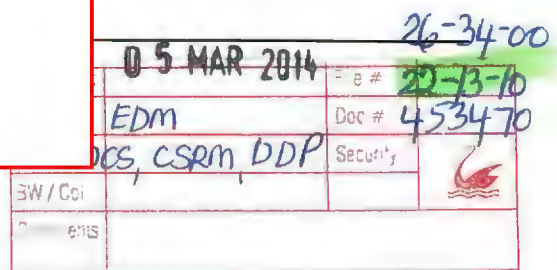 26-34-00
05 MAR 2014 File # 22-13-10
EDM Doc # 453470
DCS, CSRM, DDP Security
BW / Col